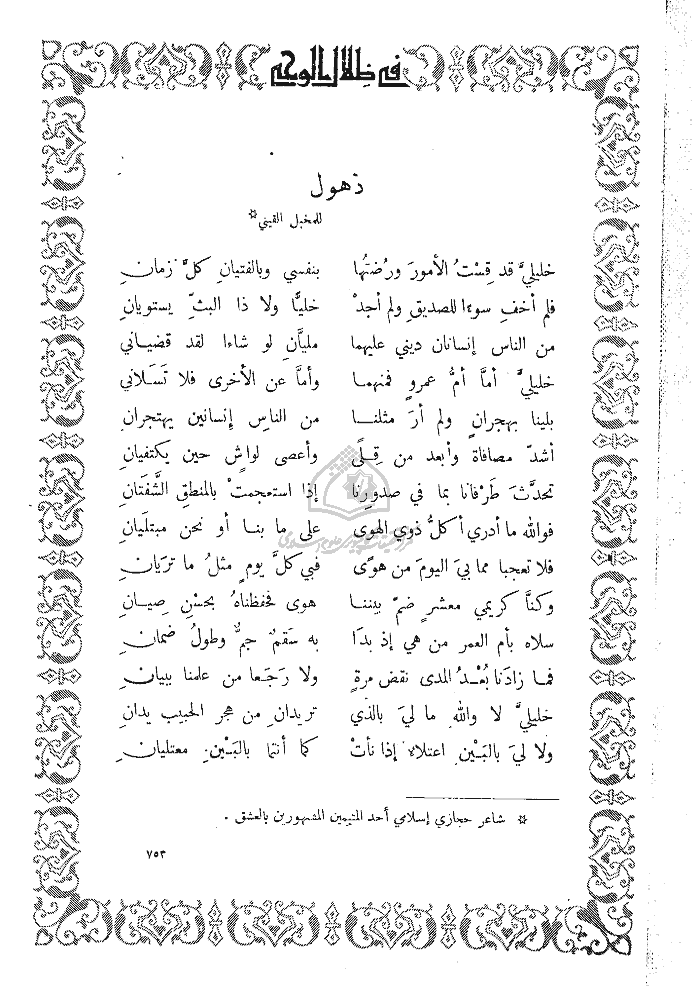 في ظلال الوحي
ذهول
للمخبل القيني*
خليليَّ قد قِسْتُ الأمورَ ورُضتُها بنفسي وبالفتيانِ كلَّ زمانِ
فلم أخفِ سوءا للصديقِ ولم أجدْ خليًّا ولا ذا البثِّ يستويانِ
من الناس إنسانان ديني عليهما مليَّانِ لو شاءا لقد قضياني
خليليَّ أمَّا أمُّ عمروٍ فمنهما وأمَّا عن الأخرى فلا تَسَلاني
بلينا بهجرانٍ ولم أرَ مثلنا من الناسِ إنسانين يهتجرانِ
أشدّ مصافاةً وأبعد من قِلًى وأعصى لواشٍ حين يكتفيانِ
تحدثَ طَرْفانا بما في صدورِنا إذا استعجمتْ بالمنطقِ الشَّفَتانِ
فوالله ما أدري أكلُّ ذوي الهوى على ما بنا أو نحن مبتلَيانِ
فلا تعجبا مما بيَ اليومَ من هوًى فبي كلَّ يومٍ مثلُ ما تَرَيانِ
وكنَّا كريمي معشرٍ ضمّ بيننا هوى فحفظناهُ بحسْنِ صِيانِ
سلاه بأم العمر من هي إذ بدَا به سَقمٌ جمٌّ وطولُ ضمانِ
فما زادَنا بُعْدُ المدى نقض مرةٍ ولا رَجَعا من علمنا ببيانِ
خليليَّ لا واللهِ ما ليَ بالذي تريدانِ من هجرِ الحبيب يدانِ
ولا ليَ بالبَيْنِ اعتلاءٌ إذا نأتْ كما أنتما بالبَيْنِ معتليانِ
* شاعر حجازي إسلامي أحد المتيمين المشهورين بالعشق .
٧٥٣